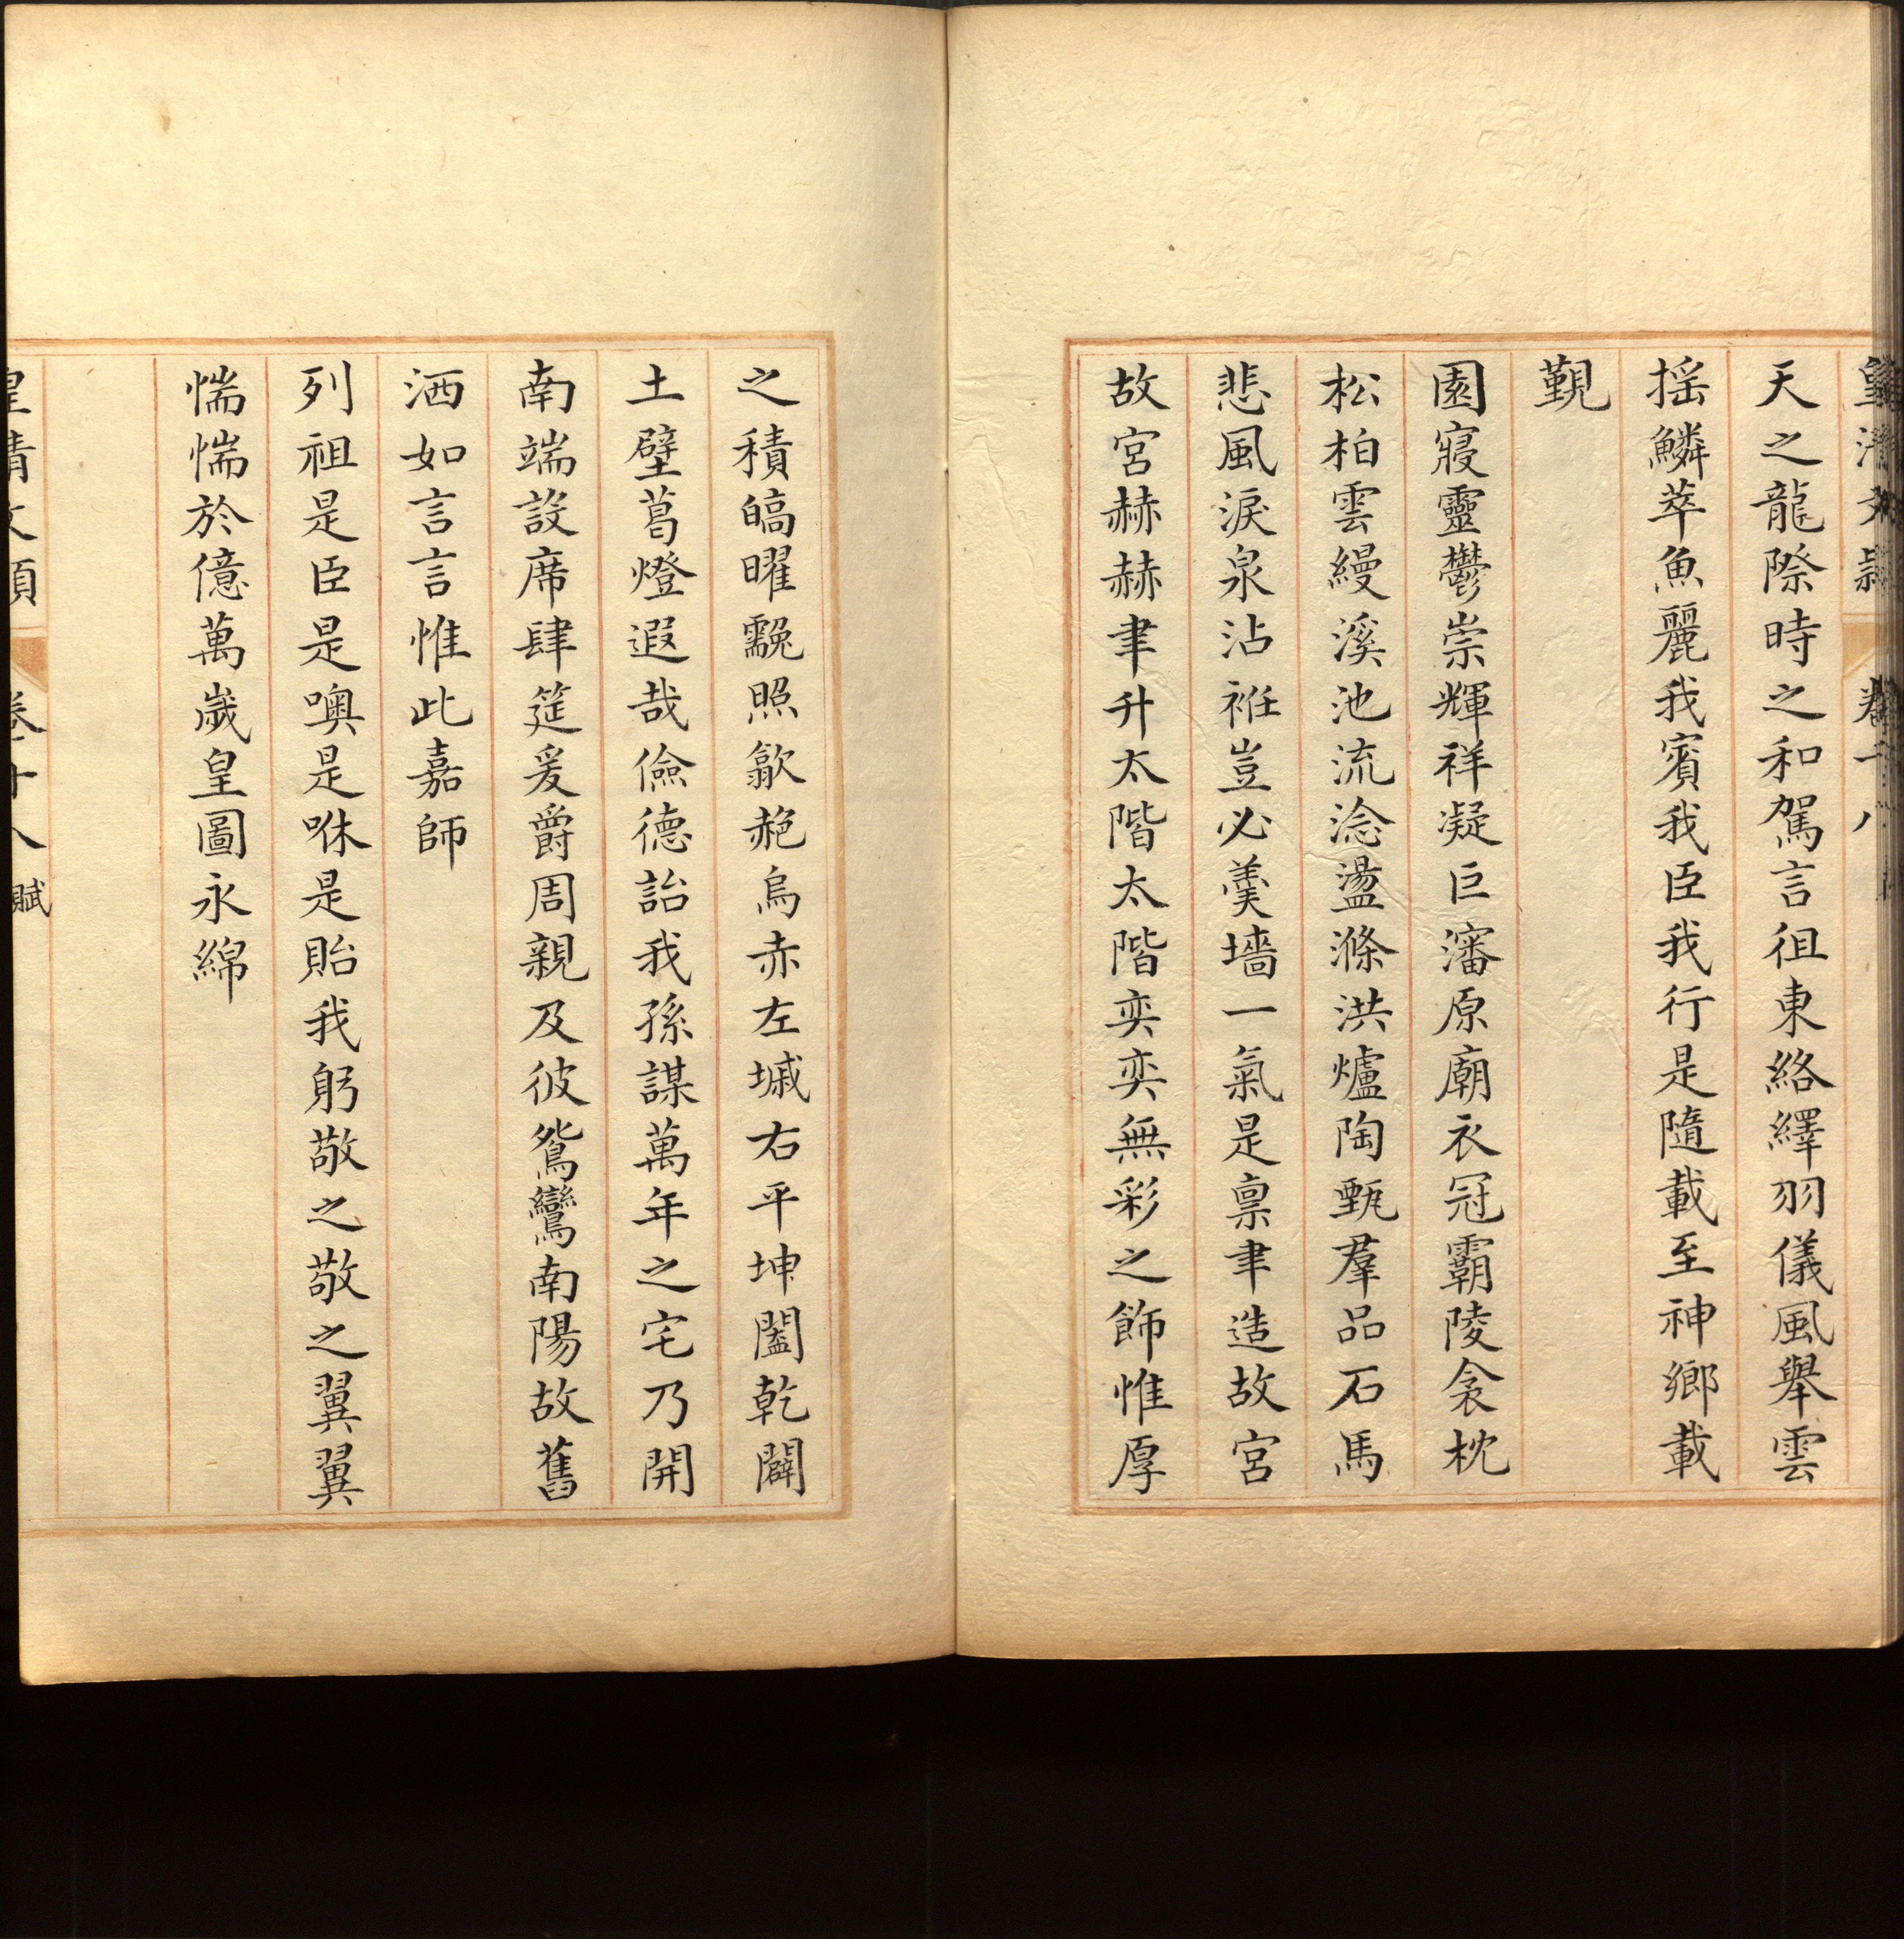 天之龍際時之和駕言徂東絡繹羽儀風舉雲
搖鱗萃魚麗我賓我臣我行是隨載至神鄉載
覲
園寢靈鬱崇輝祥凝巨瀋原廟衣冠霸陵衾枕
松柏雲縵溪池流淰盪滌洪爐陶甄羣品石馬
悲風淚泉沾袵豈必羹墻一氣是稟聿造故宮
故宮赫赫聿升太階太階奕奕無彩之飾惟厚
之積皜曜照歙赩烏赤左墄右平坤闔乾闢
土壁葛燈遐哉儉德詒我孫謀萬年之宅乃開
南端設席肆筵爰爵周親及彼鴛鸞南陽故舊
洒如言言惟此嘉師
列祖是臣是噢是咻是貽我躬敬之敬之翼翼
惴惴於億萬歲皇圖永綿
皇清文穎 卷十八 賦